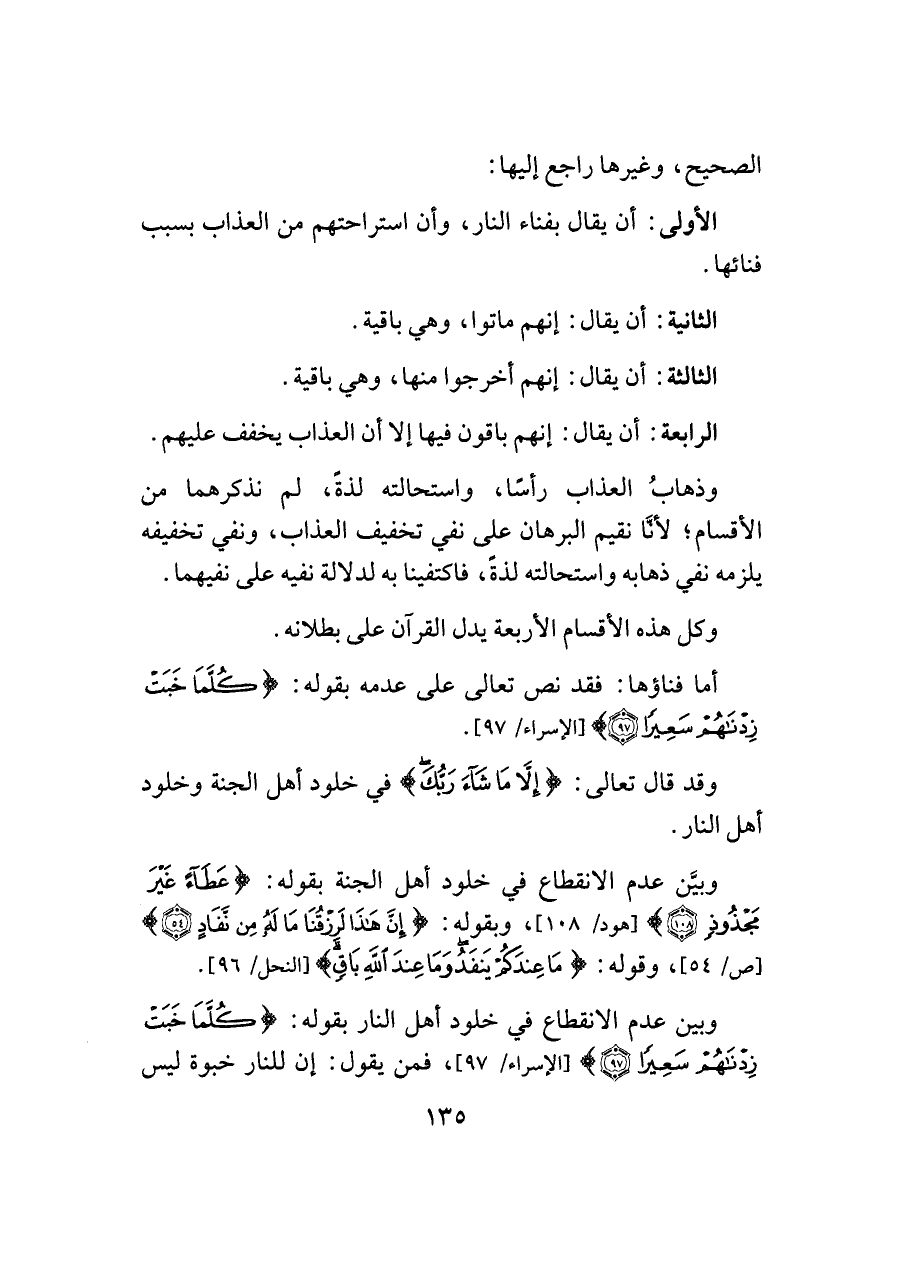 الصحيح، وغيرها راجع إليها:
الأولى: أن يقال بفناء النار، وأن استراحتهم من العذاب بسبب
فنائها.
الثانية: أن يقال: إنهم ماتوا، وهي باقية.
الثالثة: أن يقال: إنهم أخرجوا منها، وهي باقية.
الرابعة: أن يقال: إنهم باقون فيها إلا أن العذاب يخفف عليهم.
وذهابُ العذاب رأسًا، واستحالته لذةً، لم نذكرهما من
الأقسام؛ لأنَّا نقيم البرهان على نفي تخفيف العذاب، ونفي تخفيفه
يلزمه نفي ذهابه واستحالته لذةً، فاكتفينا به لدلالة نفيه على نفيهما.
وكل هذه الأقسام الأربعة يدل القرآن على بطلانه.
أما فناؤها: فقد نص تعالى على عدمه بقوله: ﴿كُلَّمَا خَبَتْ
زِدْنَٰهُمْ سَعِيرًا ۝٩٧﴾ [الإسراء/ ٩٧].
وقد قال تعالى: ﴿إِلَّا مَا شَآءَ رَبُّكَۖ﴾ في خلود أهل الجنة وخلود
أهل النار.
وبيَّن عدم الانقطاع في خلود أهل الجنة بقوله: ﴿عَطَآءً غَيْرَ
مَجْذُوذٍ ۝١٠٨﴾ [هود/ ١٠٨]، وبقوله: ﴿إِنَّ هَٰذَا لَرِزْقُنَا مَا لَهُۥ مِن نَّفَادٍ ۝٥٤﴾
[ص/ ٥٤]، وقوله: ﴿مَا عِندَكُمْ يَنفَدُۖ وَمَا عِندَ ٱللَّهِ بَاقٍۗ﴾ [النحل/ ٩٦].
وبين عدم الانقطاع في خلود أهل النار بقوله: ﴿كُلَّمَا خَبَتْ
زِدْنَٰهُمْ سَعِيرًا ۝٩٧﴾ [الإسراء/ ٩٧]، فمن يقول: إن للنار خبوة ليس
١٣٥